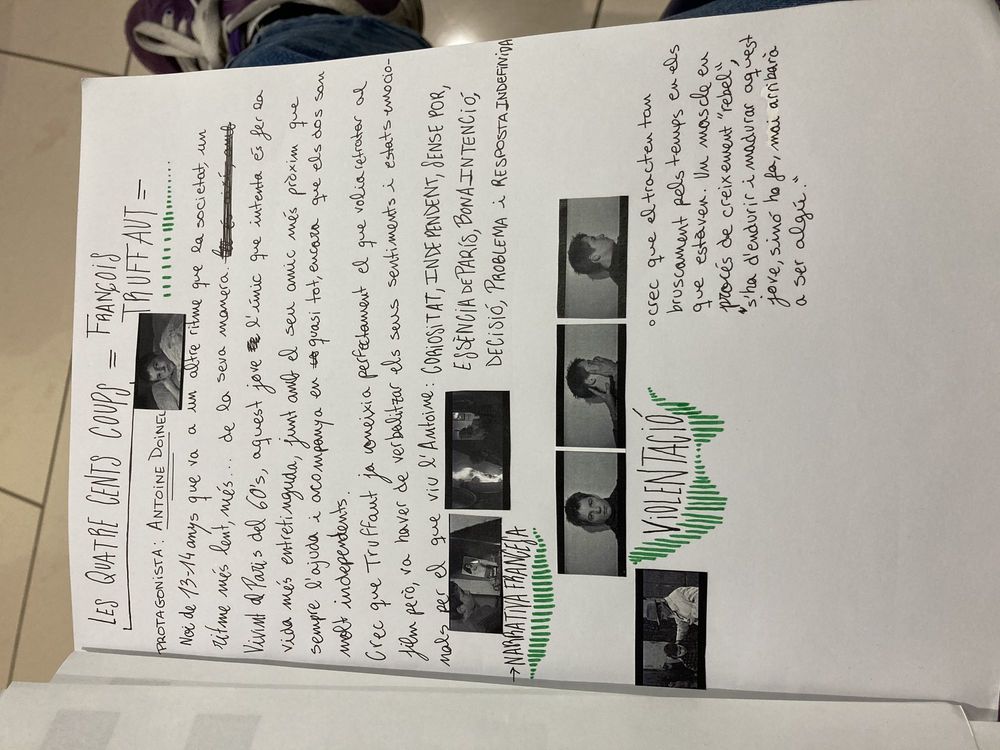 LES QUATRE CENTS COUPS = FRANÇOIS
TRUFFAUT =
PROTAGONISTA: ANTOINE DOINEL
Noi de 13-14 anys que va a un altre ritme que la societat, un
ritme més lent, més... de la seva manera.
Vivint al París del 60's, aquest jove l'únic que intenta és fer la
vida més entretinguda, junt amb el seu amic més pròxim que
sempre l'ajuda i acompanya en quasi tot, encara que els dos son
molt independents.
Crec que Truffaut ja coneixia perfectament el que volia retratar al
film però, va haver de verbalitzar els seus sentiments i estats emocio-
nals per el que viu l'Antoine: CORIOSITAT, INDEPENDENT, SENSE POR,
ESSÈNCIA DE PARÍS, BONA INTENCIÓ,
DECISIÓ, PROBLEMA i RESPOSTA INDEFINIDA
→ NARRATIVA FRANCESA
VIOLENTACIÓ
◦ crec que el tracten tan
bruscament pels temps en els
que estàven. Un mascle en
procés de creixement "rebel",
"s'ha d'endurir i madurar aquest
jove, sinó ho fa, mai arribarà
a ser algú."